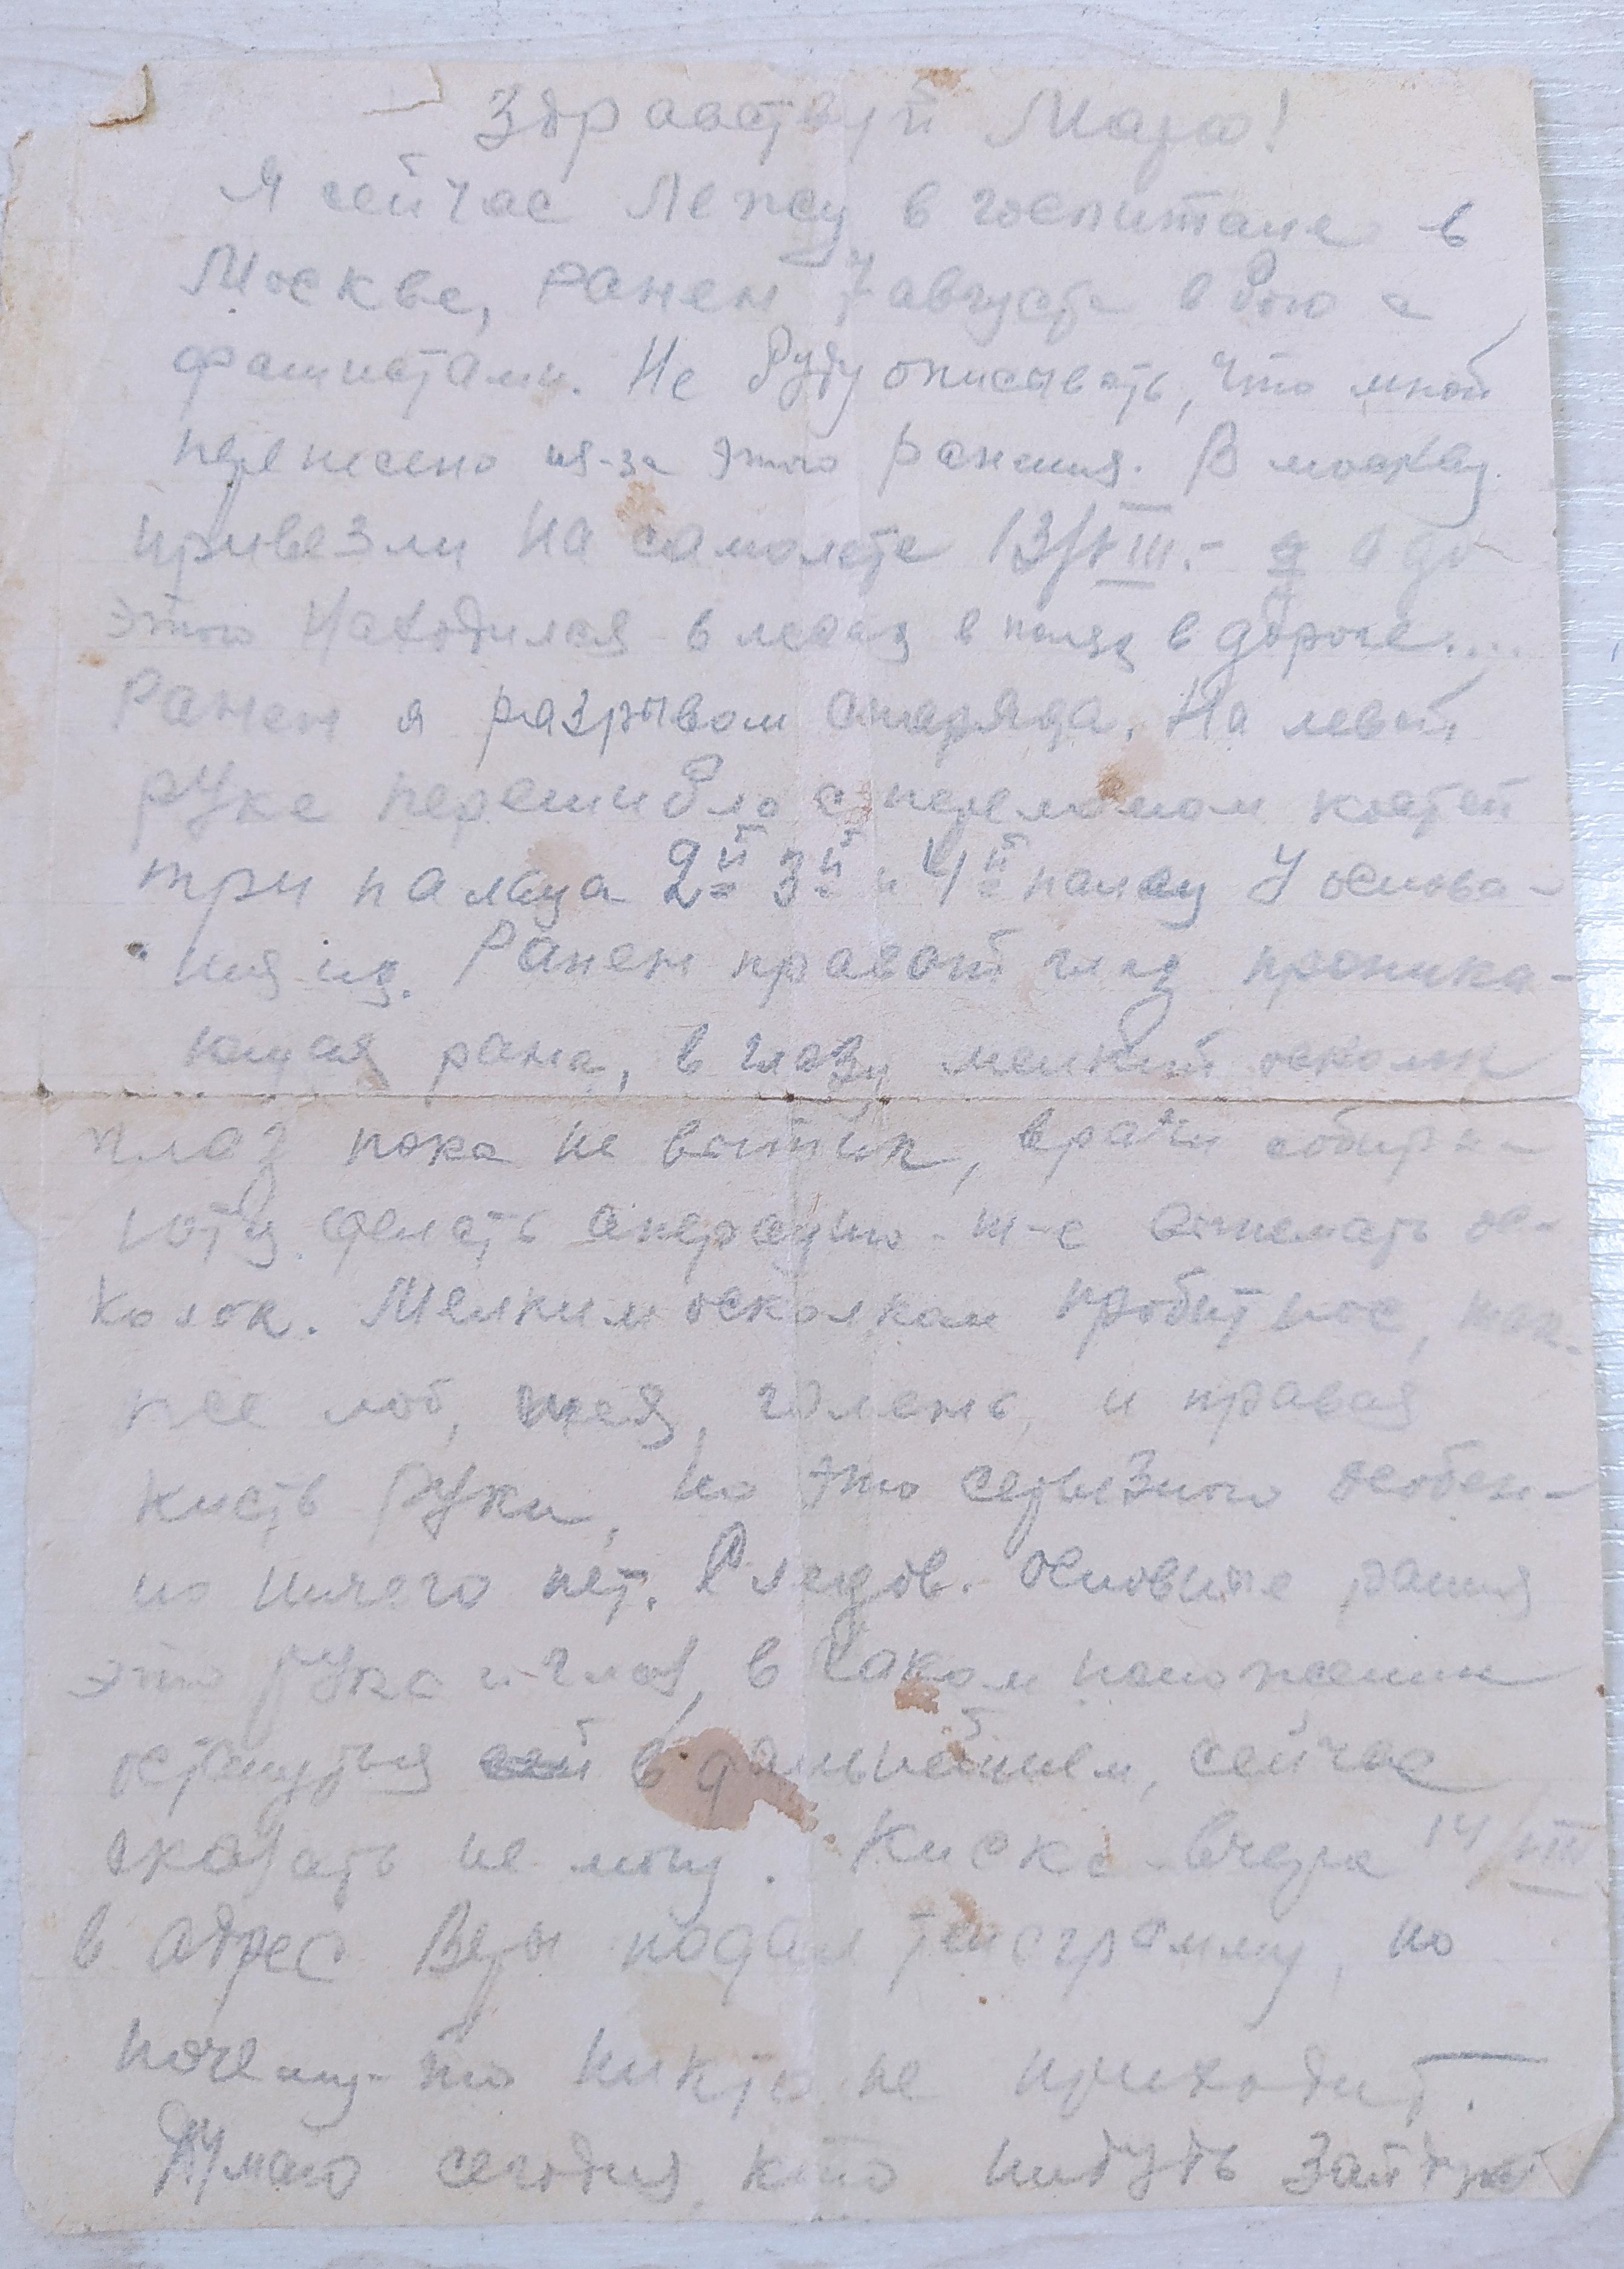 Здравствуй Маро!
Я сейчас лежу в госпитале в
Москве, ранен 7 августа в бою с
фашистами. Не буду описывать, что мной
перенесено из-за этого ранения. В москву
привезли на самолете 13/VIII.- а до
этого находился в лесах в полях в дороге....
Ранен я разрывом снаряда. На левой
руке перешибло с переломом костей
три пальца 2й 3й и 4й палец у основа-
ния их. Ранен правой глаз проника-
ющая рана, в глазу мелкий осколок
глаз пока не вытек, врачи собира-
ются делать операцию т-е вынимать ос-
колок. Мелким осколкам пробит нос,
лоб, шея, голень, и правая
кисть руки, но это серьезного особен-
но ничего нет. Следов. основные рания
это рука и глаз, в каком положении
останутся в дальнейшем, сейчас
сказать не могу. Киска вчера 14/VIII
в адрес Веры подал телеграмму, но
почему-то никто не приходит.
Думаю сегодня кто нибудь зайдут